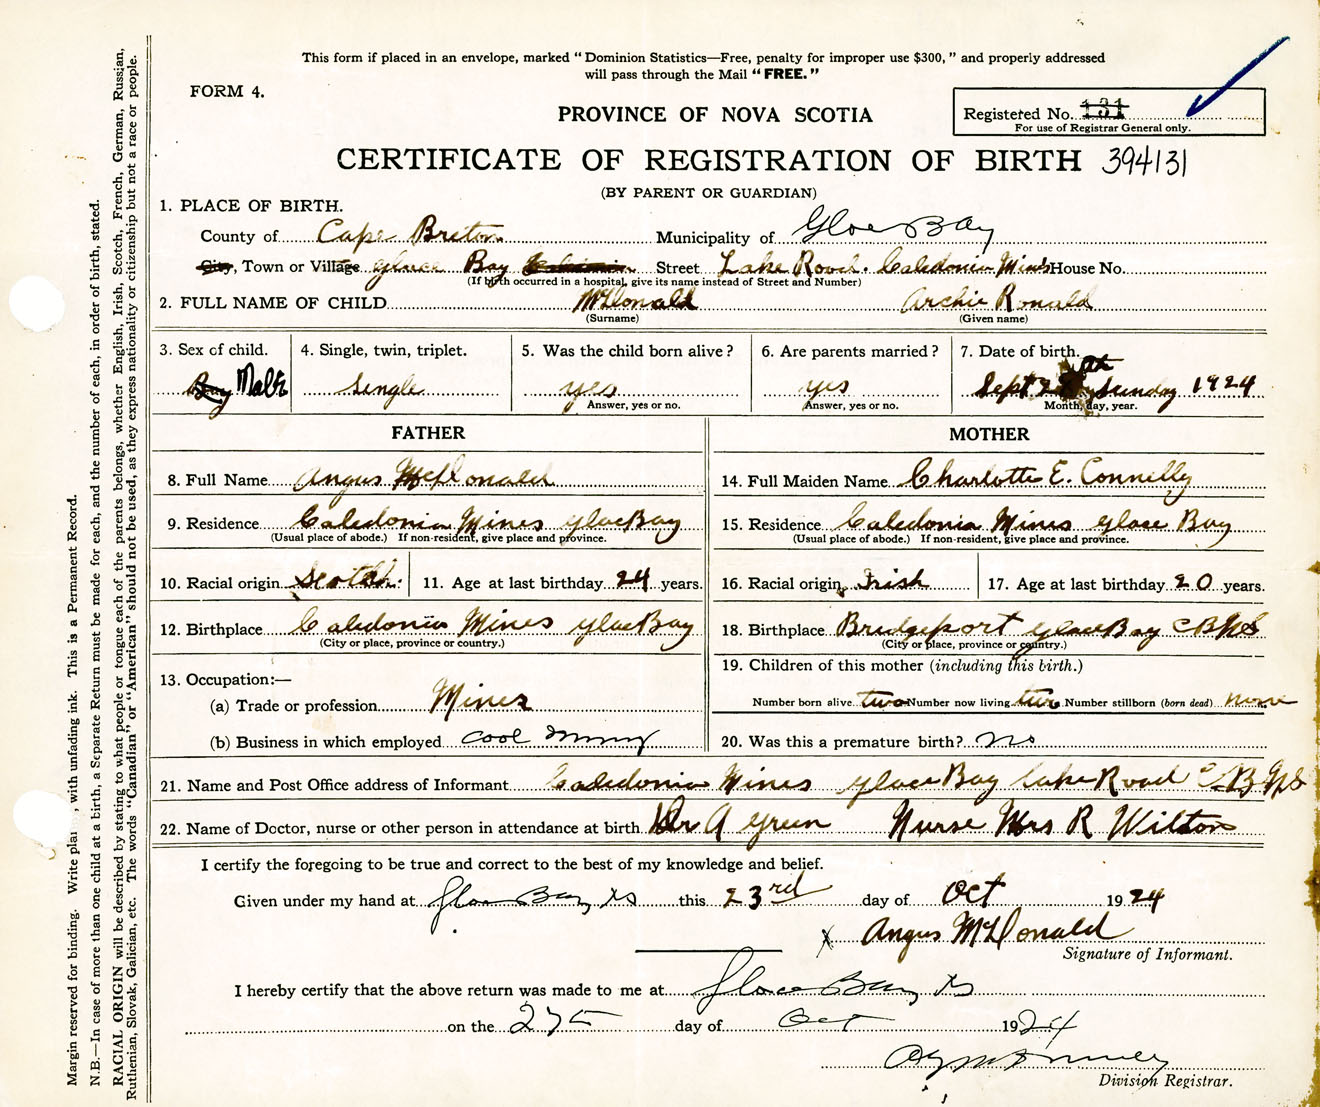 This form if placed in an envelope, marked "Dominion Statistics—Free, penalty for improper use $300," and properly addressed
will pass through the Mail "FREE."
FORM 4.
PROVINCE OF NOVA SCOTIA
Registered No. 131
For use of Registrar General only.
CERTIFICATE OF REGISTRATION OF BIRTH 394131
(BY PARENT OR GUARDIAN)
1. PLACE OF BIRTH.
County of Cape Breton Municipality of Glace Bay
City, Town or Village Glace Bay Caledonia Street Lake Road. Caledonia Mines House No.
(If birth occurred in a hospital, give its name instead of Street and Number)
2. FULL NAME OF CHILD McDonald Archie Ronald
(Surname) (Given name)
3. Sex of child. 4. Single, twin, triplet. 5. Was the child born alive? 6. Are parents married? 7. Date of birth.
Boy Male Single yes yes Sept Sunday 1924
Answer, yes or no. Answer, yes or no. Month, day, year.
FATHER MOTHER
8. Full Name Angus McDonald 14. Full Maiden Name Charlotte E. Connelly
9. Residence Caledonia Mines Glace Bay 15. Residence Caledonia Mines Glace Bay
(Usual place of abode.) If non-resident, give place and province. (Usual place of abode.) If non-resident, give place and province.
10. Racial origin Scotch. 11. Age at last birthday 24 years. 16. Racial origin Irish 17. Age at last birthday 20 years.
12. Birthplace Caledonia Mines Glace Bay 18. Birthplace Bridgeport Glace Bay C B N S
(City or place, province or country.) (City or place, province or country.)
19. Children of this mother (including this birth.)
13. Occupation:—
(a) Trade or profession Miner Number born alive two Number now living two Number stillborn (born dead) none
(b) Business in which employed Cool Mining 20. Was this a premature birth? no
21. Name and Post Office address of Informant Caledonia Mines Glace Bay Lake Road C B N S
22. Name of Doctor, nurse or other person in attendance at birth Dr A Green Nurse Mrs R Wilton
I certify the foregoing to be true and correct to the best of my knowledge and belief.
Given under my hand at Glace Bay NS this 23rd day of Oct 1924
X Angus McDonald
Signature of Informant.
I hereby certify that the above return was made to me at Glace Bay NS
on the 27th day of Oct 1924
Division Registrar.
Margin reserved for binding. Write plai , with unfading ink. This is a Permanent Record.
N.B.—In case of more than one child at a birth, a Separate Return must be made for each, and the number of each, in order of birth, stated.
RACIAL ORIGIN will be described by stating to what people or tongue each of the parents belongs, whether English, Irish, Scotch, French, German, Russian,
Ruthenian, Slovak, Galician, etc. The words "Canadian" or "American" should not be used, as they express nationality or citizenship but not a race or people.